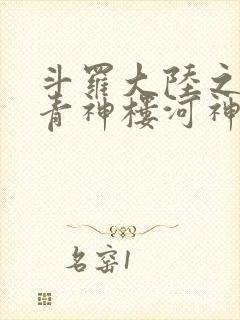 斗羅大陸之
青神樓河神
名窑1